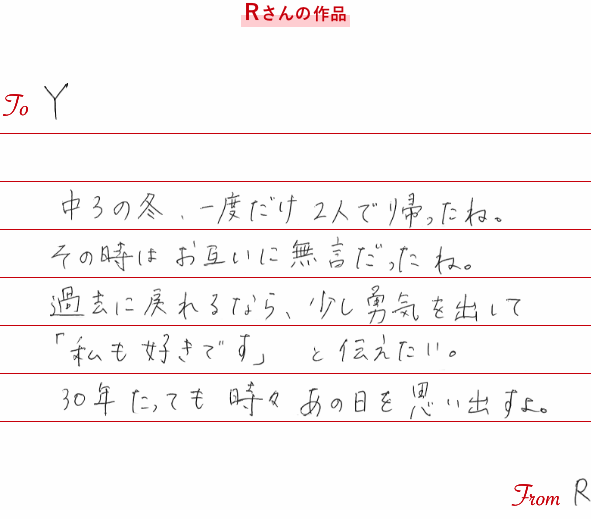 Rさんの作品
To Y
中3の冬、一度だけ2人で帰ったね。
その時はお互いに無言だったね。
過去に戻れるなら、少し勇気を出して
「私も好きです」と伝えたい。
30年たっても時々あの日を思い出すよ。
From R